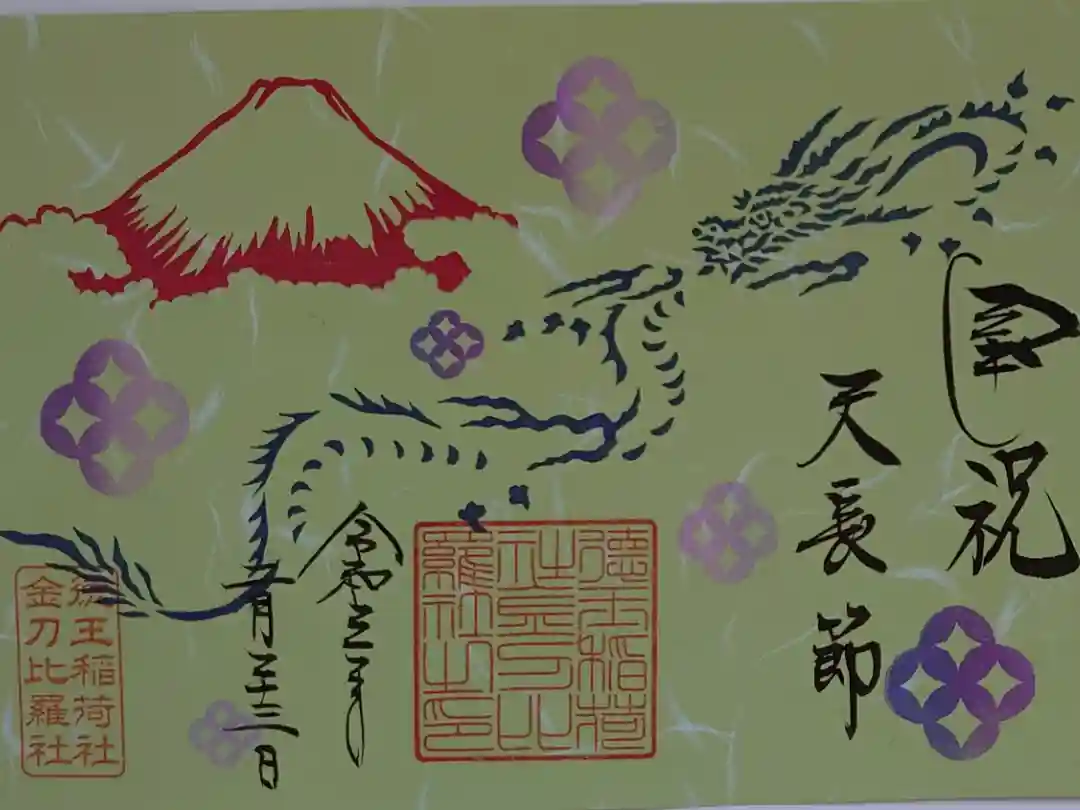 祝
天長節
德王稻荷
社金刀比
羅社之印
令和三年
月 十三日
徳王稲荷社
金刀比羅社